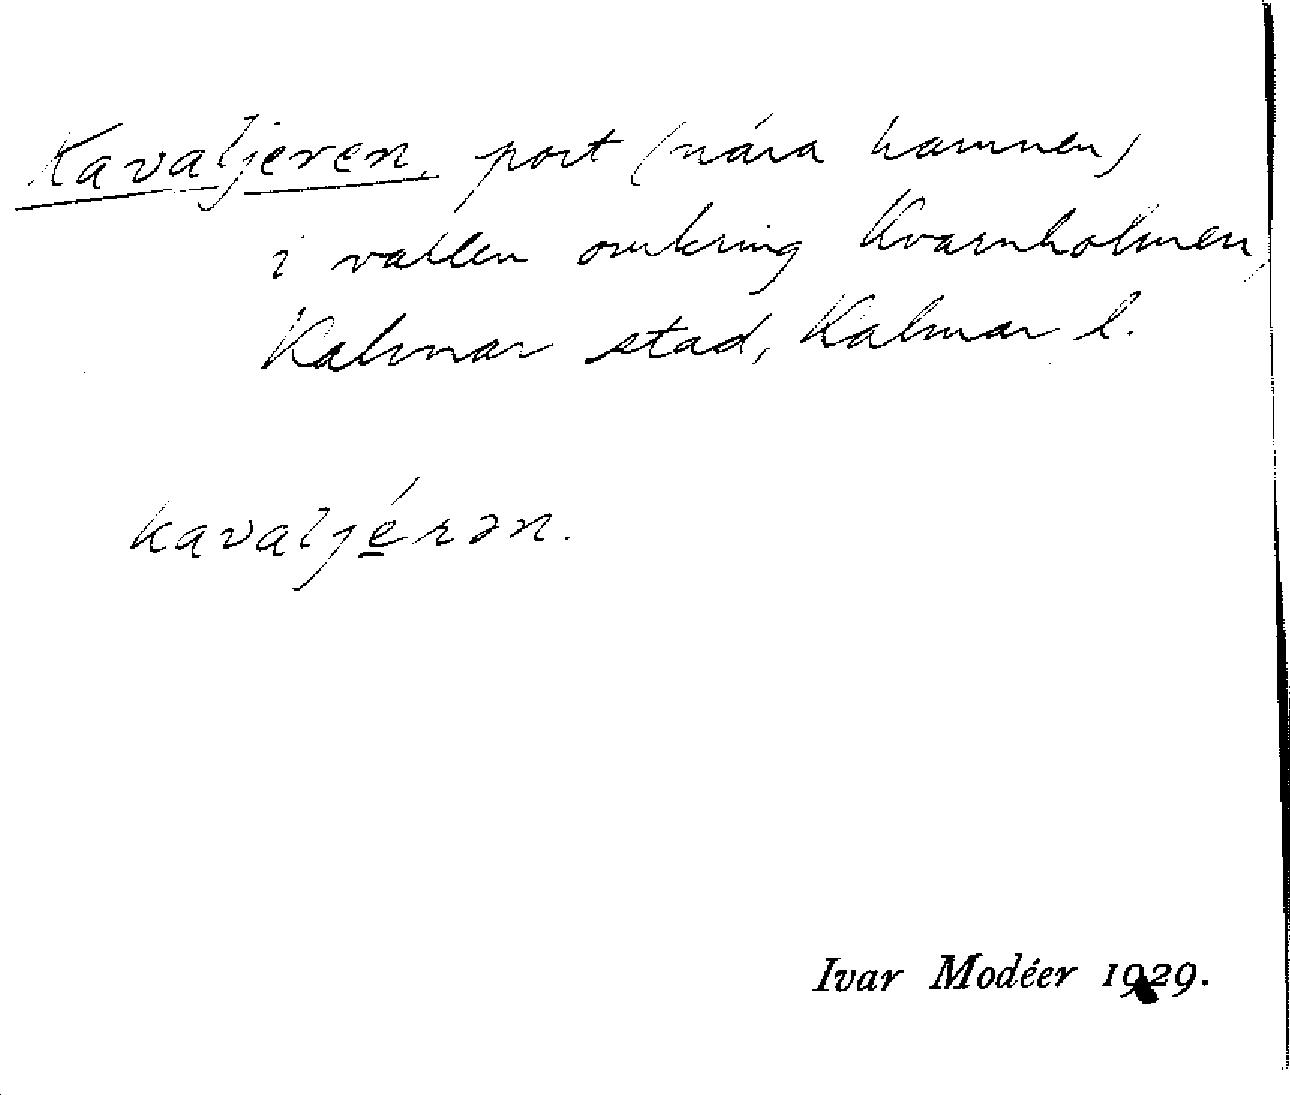 Kavaljeren, port (nära hamnen)
i vallen omkring Kvarnholmen,
Kalmar stad, Kalmar l.
kavaljérən.
Ivar Modéer 1929.